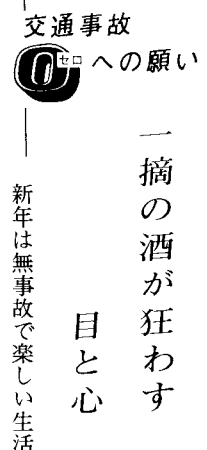 交通事故
0ゼロへの願い
一摘の酒が狂わす
目と心
新年は無事故で楽しい生活